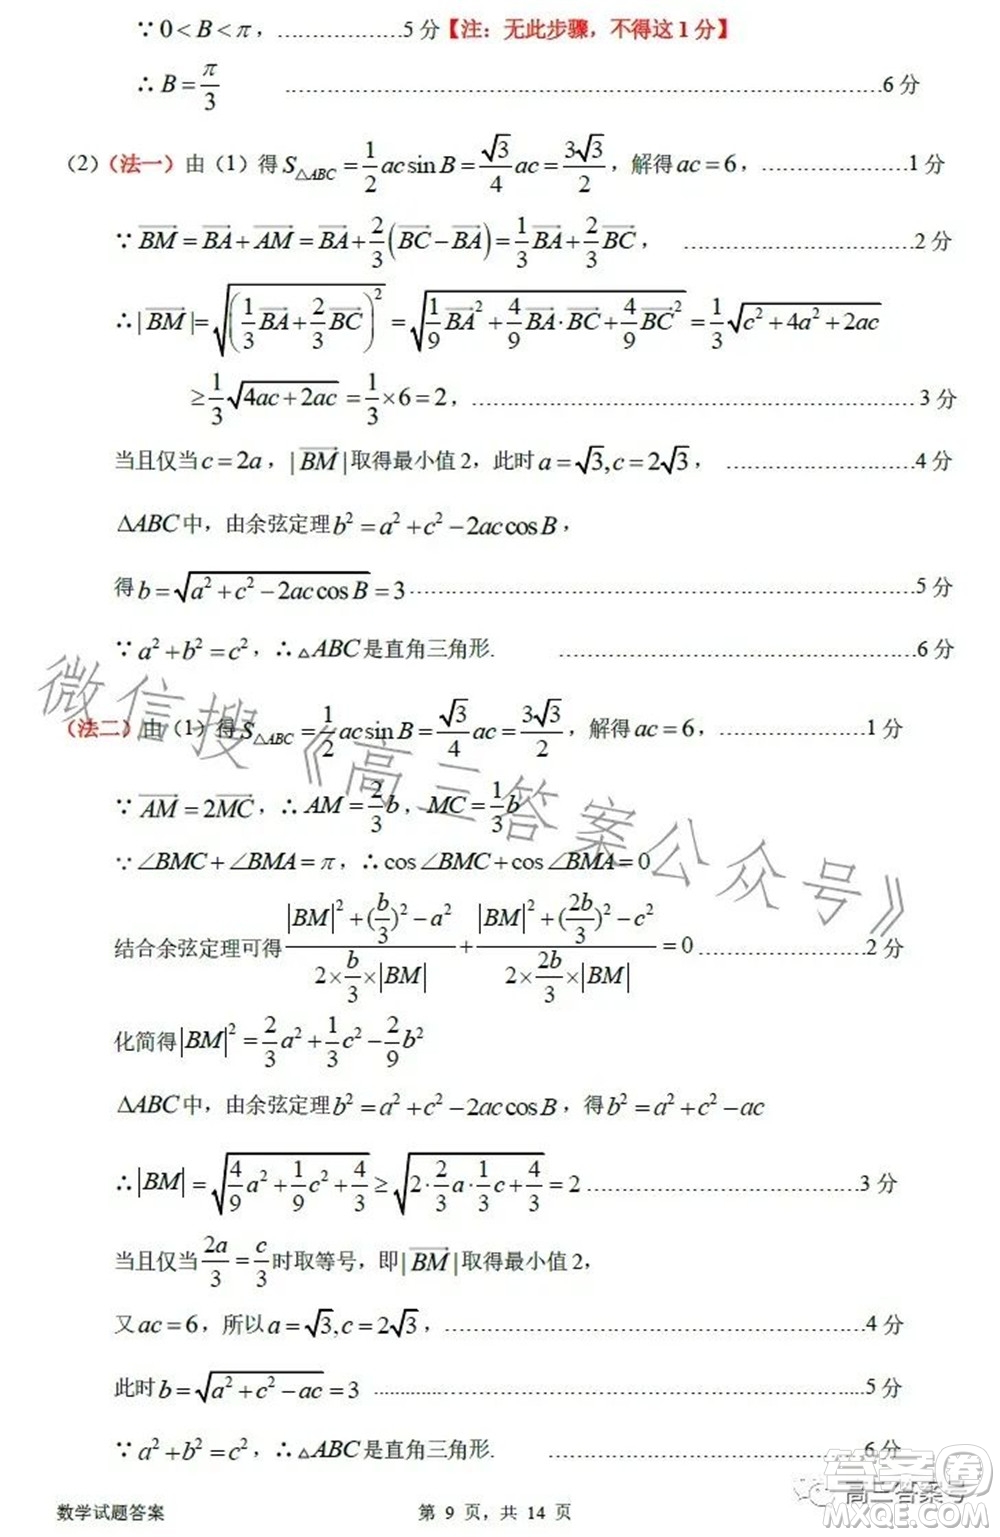 ∵ 0 < B < π，…………………5 分【注：无此步骤，不得这 1 分】
∴ B = π/3 ……………………………………………………6 分
（2）（法一）由（1）得 S△ABC = 1/2 ac sin B = √3/4 ac = 3√3/2，解得 ac = 6，……………………1 分
∵ BM→ = BA→ + AM→ = BA→ + 2/3(BC→ − BA→) = 1/3 BA→ + 2/3 BC→， ……………………2 分
∴ |BM→| = √((1/3 BA→ + 2/3 BC→)²) = √(1/9 BA→² + 4/9 BA→·BC→ + 4/9 BC→²) = 1/3 √(c² + 4a² + 2ac)
≥ 1/3 √(4ac + 2ac) = 1/3 × 6 = 2，……………………………………3 分
当且仅当 c = 2a，|BM→| 取得最小值 2，此时 a = √3, c = 2√3， ………………4 分
ΔABC 中，由余弦定理 b² = a² + c² − 2ac cos B，
得 b = √(a² + c² − 2ac cos B) = 3……………………………………………5 分
∵ a² + b² = c²，∴ △ABC 是直角三角形. ………………………………6 分
（法二）由（1）得 S△ABC = 1/2 ac sin B = √3/4 ac = 3√3/2，解得 ac = 6，………………1 分
∵ AM→ = 2MC→，∴ AM = 2/3 b，MC = 1/3 b
∵ ∠BMC + ∠BMA = π，∴ cos ∠BMC + cos ∠BMA = 0
结合余弦定理可得 (|BM|² + (b/3)² − a²)/(2 × b/3 × |BM|) + (|BM|² + (2b/3)² − c²)/(2 × 2b/3 × |BM|) = 0 ………………2 分
化简得 |BM|² = 2/3 a² + 1/3 c² − 2/9 b²
ΔABC 中，由余弦定理 b² = a² + c² − 2ac cos B，得 b² = a² + c² − ac
∴ |BM| = √(4/9 a² + 1/9 c² + 4/3) ≥ √(2·2/3 a·1/3 c + 4/3) = 2 …………………………3 分
当且仅当 2a/3 = c/3 时取等号，即 |BM→| 取得最小值 2，
又 ac = 6，所以 a = √3, c = 2√3，………………………………………4 分
此时 b = √(a² + c² − ac) = 3 ……………………………………………5 分
∵ a² + b² = c²，∴ △ABC 是直角三角形. ………………………………6 分
微信搜《高三答案公众号》
答案卷
高三答案号
MXQE.COM
数学试题答案 第 9 页，共 14 页